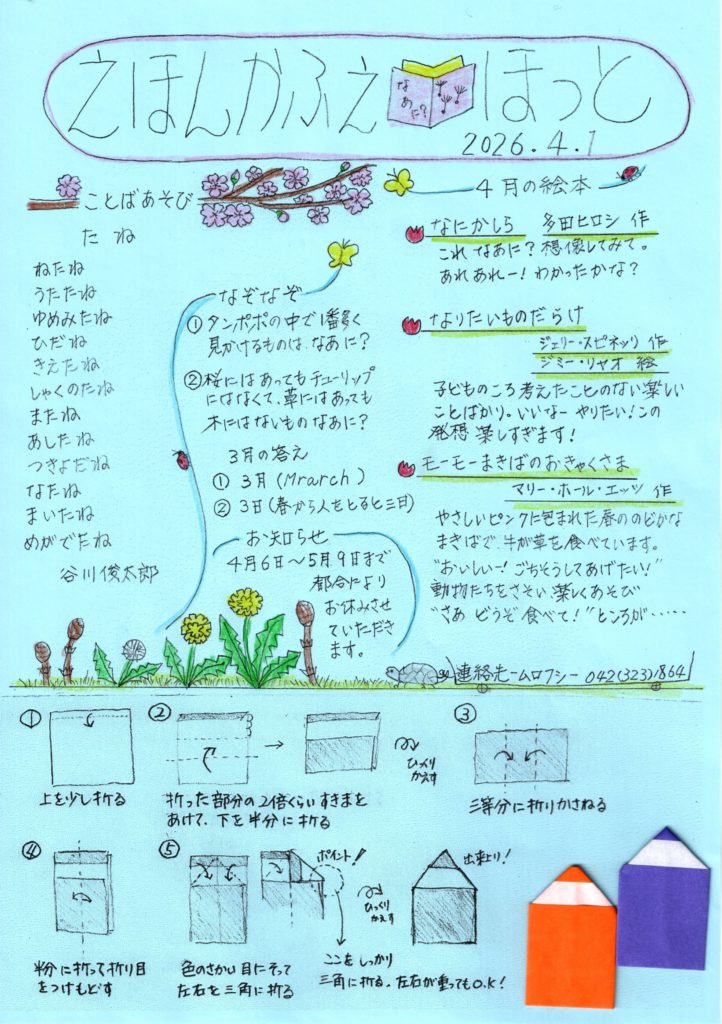 えほんかふぇ
なあに?
ほっと
2026.4.1
ことばあそび
たね
ねたね
うたたね
ゆめみたね
ひだね
きえたね
しゃくのたね
またね
あしたね
つきよだね
なたね
まいたね
めがでたね
谷川俊太郎
なぞなぞ
①タンポポの中で1番多く
見かけるものは、なあに?
②桜にはあってもチューリップ
にはなくて、草にはあっても
木にはないものなあに?
3月の答え
① 3月(Mrarch)
② 3日(春から人をとると三日)
お知らせ
4月6日〜5月9日まで
都合により
お休みさせ
ていただき
ます。
4月の絵本
なにかしら 多田ヒロシ 作
これ なあに? 想像してみて。
あれあれー! わかったかな?
なりたいものだらけ
ジェリー・スピネッリ 作
ジミー・リャオ 絵
子どものころ考えたことのない楽しい
ことばかり。いいなー やりたい!この
発想 楽しすぎます!
モーモーまきばのおきゃくさま
マリー・ホール・エッツ 作
やさしいピンクに包まれた春ののどかな
まきばで、牛が草を食べています。
"おいしいー! ごちそうしてあげたい!"
動物たちをさそい、楽しくあそび
"さあ どうぞ 食べて!"ところが・・・・・
連絡先ームロフシー 042(323)1864
①
上を少し折る
②
折った部分の2倍くらいすきまを
あけて、下を半分に折る
ひっくり
かえす
③
三等分に折りかさねる
④
半分に折って折り目
をつけもどす
⑤
色のさかい目にそって
左右を三角に折る
ポイント!
ここをしっかり
三角に折る。左右が重ってもO.K!
ひっくり
かえす
出来上り!